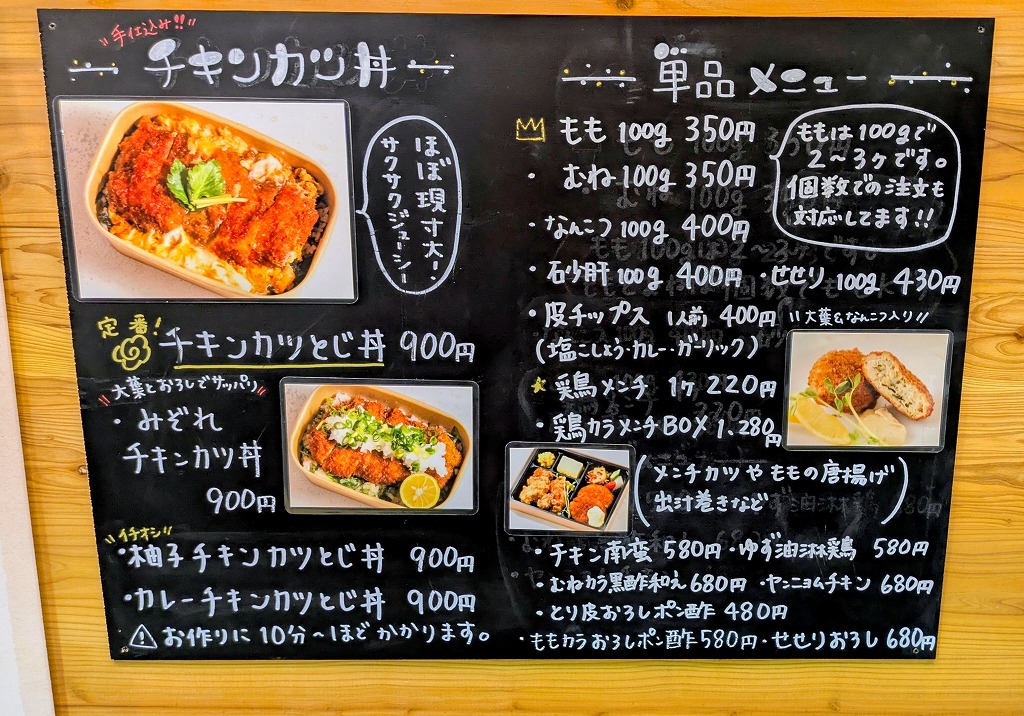 手仕込み!!
チキンカツ丼
ほぼ現寸大!
サクサクジューシー
定番!
チキンカツとじ丼 900円
大葉とおろしでサッパリ
・みぞれ
チキンカツ丼
900円
イチオシ!!
・柚子チキンカツとじ丼 900円
・カレーチキンカツとじ丼 900円
⚠お作りに10分～ほどかかります。
単品メニュー
もも 100g 350円
・むね 100g 350円
・なんこつ 100g 400円
ももは100gで
2～3ケです。
個数での注文も
対応してます!!
・砂肝 100g 400円 ・せせり 100g 430円
・皮チップス 1人前 400円
(塩こしょう・カレー・ガーリック)
大葉&なんこつ入り
★鶏メンチ 1ケ 220円
・鶏カラメンチBOX 1,280円
(メンチカツやももの唐揚げ
出汁巻きなど)
・チキン南蛮 580円 ・ゆず油淋鶏 580円
・むねカラ黒酢和え 680円 ・ヤンニョムチキン 680円
・とり皮おろしポン酢 480円
・ももカラおろしポン酢 580円 ・せせりおろし 680円